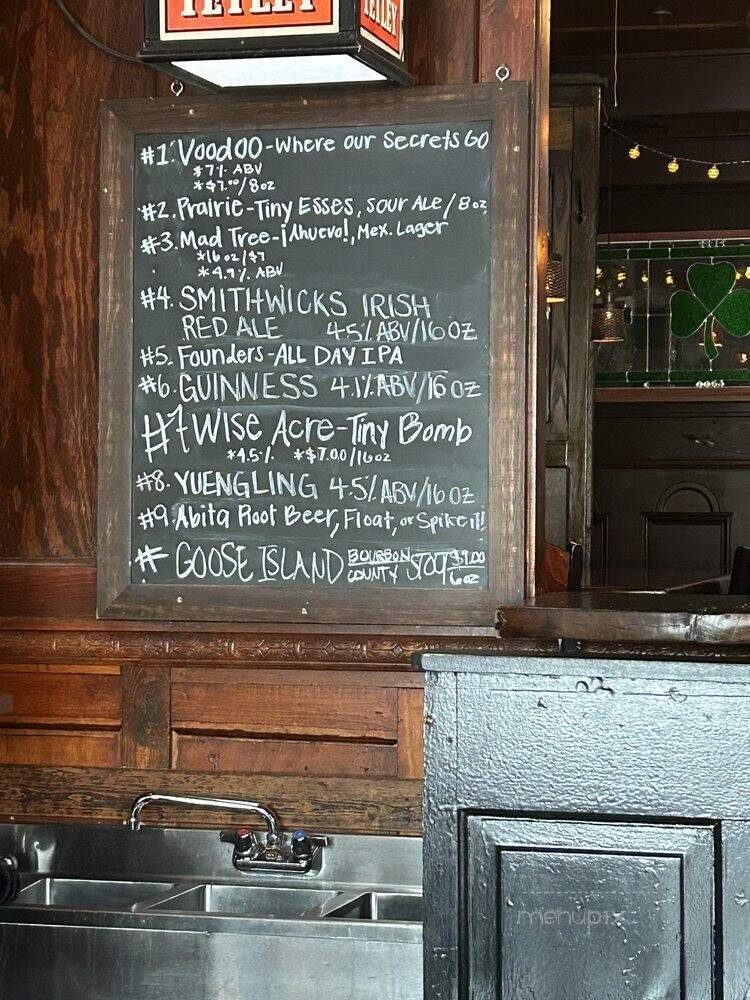 TETLEY
TETLEY
#1. VOODOO - Where our Secrets GO
*7% ABV
*$7.00/8oz
#2. Prairie - Tiny Esses, sour Ale / 8oz
#3. Mad Tree - ¡Ahuevo!, Mex. Lager
*16oz/$7
*4.9% ABV
#4. SMITHWICKS IRISH
RED ALE 4.5% ABV/16OZ
#5. Founders - ALL DAY IPA
#6. GUINNESS 4.1% ABV/16OZ
#7 WISE Acre - Tiny Bomb
*4.5% *$7.00/16oz
#8. YUENGLING 4.5% ABV/16OZ
#9. Abita Root Beer, Float, or Spike it!
# GOOSE ISLAND BOURBON COUNTY $9.00
6oz
menupix